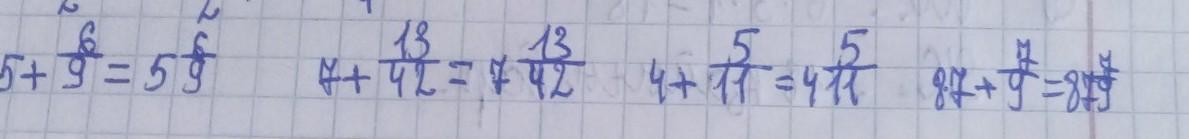 5 + 6/9 = 5 6/9   7 + 13/42 = 7 13/42   4 + 5/11 = 4 5/11   87 + 7/9 = 87 7/9